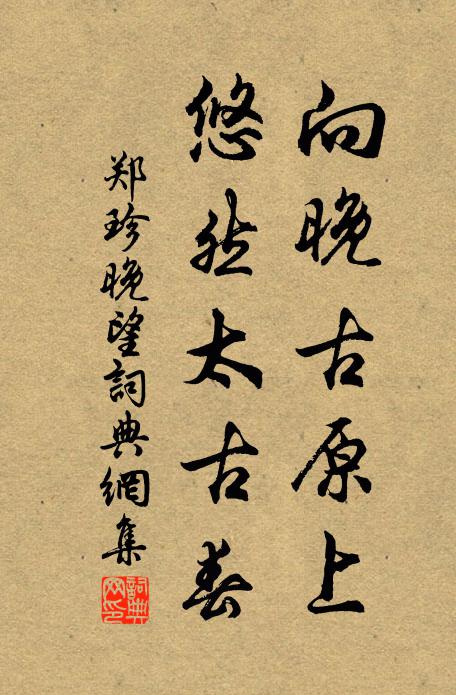 向晚古原上
悠然太古春
郑珍晚望詞典網集
詞典网印